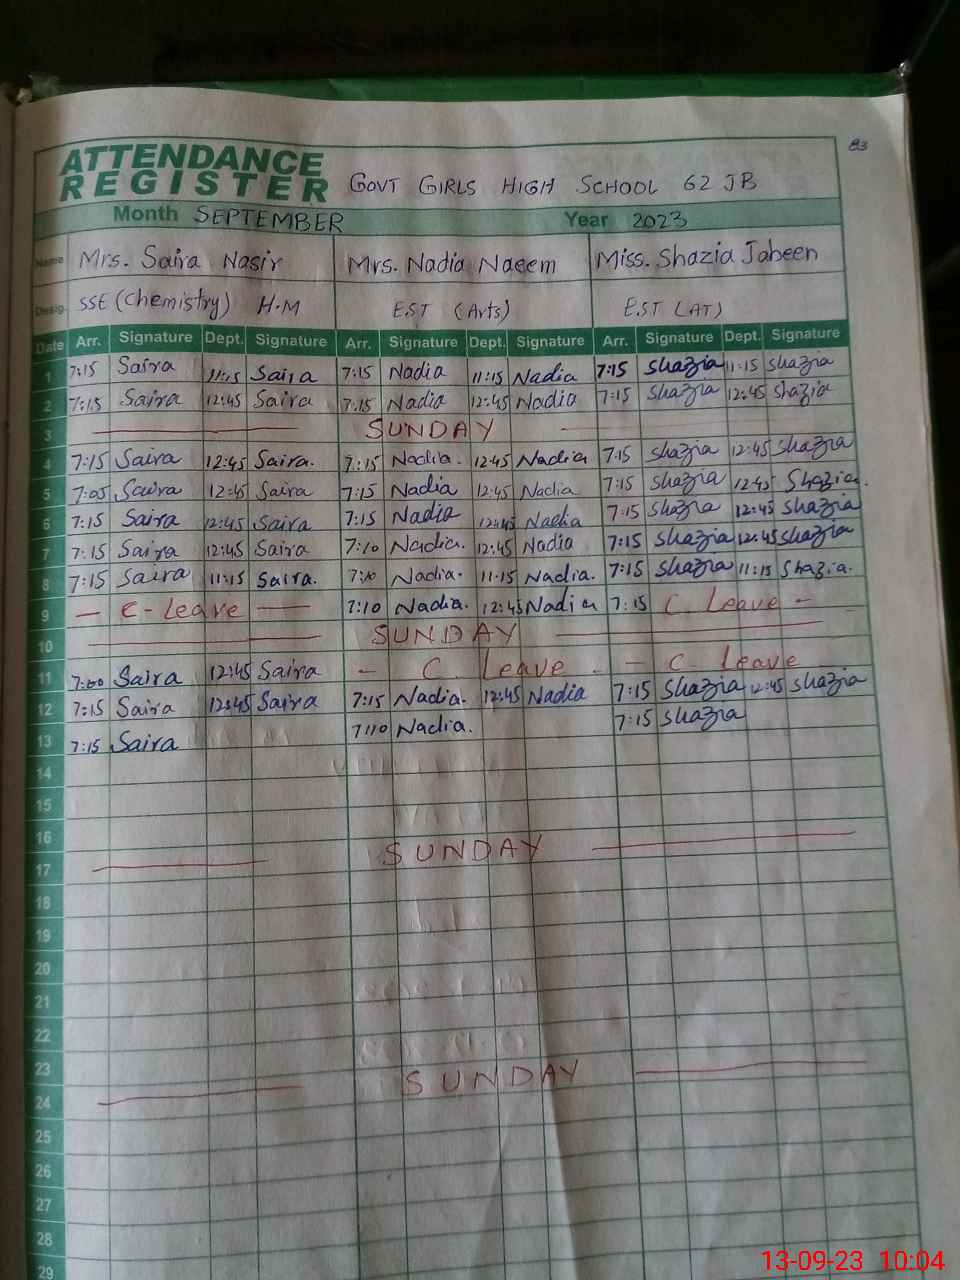 83
ATTENDANCE
REGISTER GOVT GIRLS HIGH SCHOOL 62 JB
Month SEPTEMBER Year 2023
Name Mrs. Saira Nasir Mrs. Nadia Naeem Miss. Shazia Jabeen
Desig. SSE (Chemistry) H.M EST (Arts) EST (AT)
Date Arr. Signature Dept. Signature Arr. Signature Dept. Signature Arr. Signature Dept. Signature
1 7:15 Saira 11:15 Saira 7:15 Nadia 11:15 Nadia 7:15 Shazia 11:15 Shazia
2 7:15 Saira 12:45 Saira 7:15 Nadia 12:45 Nadia 7:15 Shazia 12:45 Shazia
3 SUNDAY
4 7:15 Saira 12:45 Saira. 7:15 Nadia. 12:45 Nadia 7:15 Shazia 12:45 Shazia
5 7:05 Saira 12:45 Saira 7:15 Nadia 12:45 Nadia 7:15 Shazia 12:45 Shazia.
6 7:15 Saira 12:45 Saira 7:15 Nadia 12:45 Nadia 7:15 Shazia 12:45 Shazia
7 7:15 Saira 12:45 Saira 7:10 Nadia. 12:45 Nadia 7:15 Shazia 12:45 Shazia
8 7:15 Saira 11:15 Saira. 7:10 Nadia. 11:15 Nadia. 7:15 Shazia 11:15 Shazia.
9 - C-Leave - 7:10 Nadia. 12:45 Nadia 7:15 C. Leave -
10 SUNDAY
11 7:00 Saira 12:45 Saira - C. Leave - - C. Leave
12 7:15 Saira 12:45 Saira 7:15 Nadia. 12:45 Nadia 7:15 Shazia 12:45 Shazia
13 7:15 Saira 7:10 Nadia. 7:15 Shazia
14
15
16
17 SUNDAY
18
19
20
21
22
23
24 SUNDAY
25
26
27
28
29
13-09-23 10:04